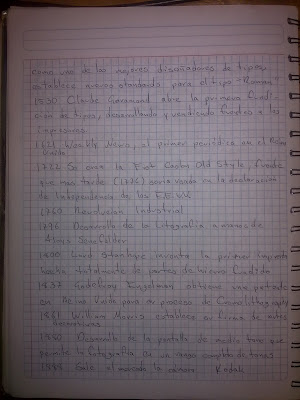 como uno de los mejores diseñadores de tipos
establece nuevos standards para el tipo "Roman"
1530 Claude Garamond abre la primera fundi-
cion de tipos, desarrollando y vendiendo fuentes a los
impresores
1621 Weekly News, el primer periodico en el Reino
Unido
1722 Se crea la Font Caslon Old Style fundida
que mas tarde (1776) seria usada en la declaracion
de Independencia de los EE.UU
1760 Revolucion Industrial
1796 Desarrollo de la Litografia a manos de
Aloys Senefelder
1800 Lord Stanhope inventa la primer imprenta
hecha totalmente de partes de hierro fundido
1837 Godefroy Engelman obtiene una patente
en
1861 William Morris establece su firma de artes
decorativas
1880 Desarrollo de la pantalla de medio tono que
permite la fotografia de un rango completo de tonos
Sale al mercado la camara Kodak